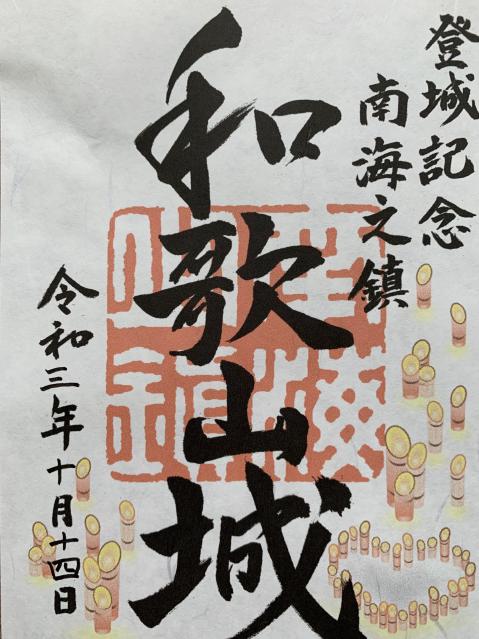 登城記念
南海之鎮
和歌山城
令和三年十月十四日